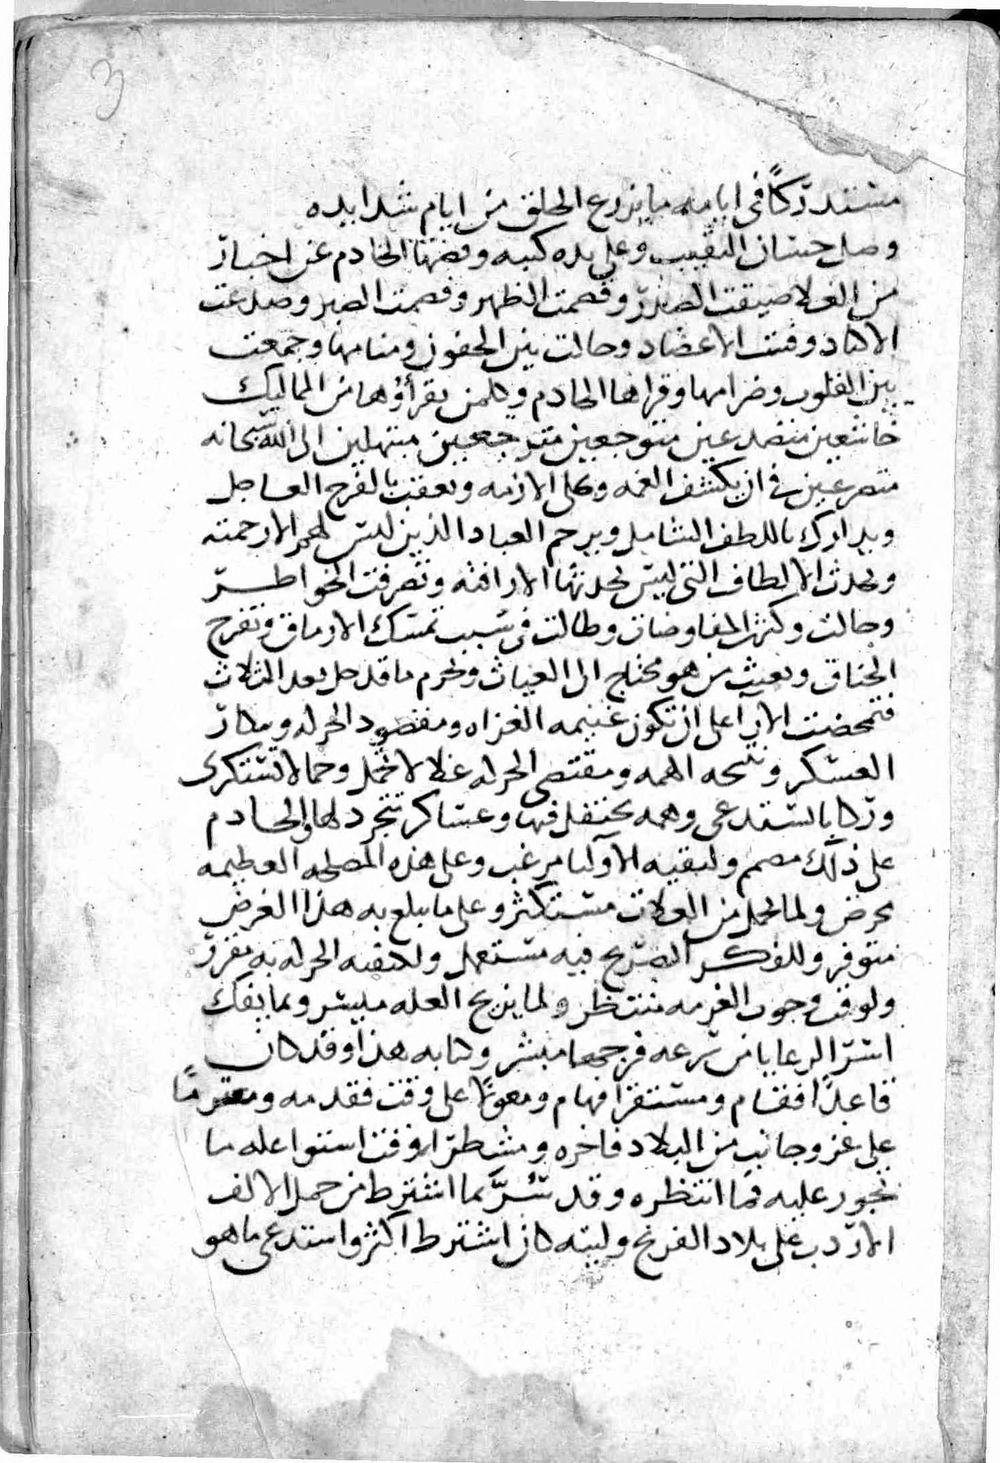 3
مستدركا في ايامه ما يزرع الخلق من ايام شدايده
وصل حسان النقيب وعلى يده كتبه وفضها الخادم عن اخبار
من الغلا ضيقت الصدر وقصمت الظهر وفصمت الصبر وصدعت
الاكباد وفتت الاعضاد وحالت بين الجفون ومنامها وجمعت
بين القلوب وضرامها وقراها الخادم وكل من يقرأوها من المماليك
خاشعين متصدعين متوجعين مترجعين مبتهلين الى الله سبحانه
متضرعين في ان يكشف الغمه ويجلى الازمه ويعقب بالفرج العاجل
ويدارك باللطف الشامل ويرحم العباد الذين ليس لهم الا رحمته
ويحدث الالطاف التي ليس يحدثها الا رافته وتصرفت الخواطر
وجالت وكثرت المفاوضات وطالت في سبب تمسك الارماق وتفرج
الخناق ويغيث من هو محتاج الى الغياث ويحرم ما قد حل بعد الثلاث
فتمخضت الارا على ان تكون غنيمه الغزاه ومقصود الحركه ومكاز
العسكر ونتيجه الهمه ومقتضى الحركه غلالا تحمل وجمالا تستكرى
وركابا تستدعى وهمه يحتفل فيها وعساكر تتجرد لها والخادم
على ذلك مصمم ولبقيه الاوليا مرغب وعلى هذه المصلحه العظيمه
محرض ولما يحمل من الغلات مستكثر وعلى ما يبلغ به هذا الغرض
متوفر وللفكر الصريح فيه مستعمل ولكيفيه الحركه به مقرر
ولوقت وجوب الغرمه منتظر ولما يزيح العله ميسر وبما يفك
اسر الرعايا من سرعه فرجها مبشر وكتابه هذا وقد كان
قاعدا فقام ومستقرا فهام ومعولا على وقت فقدمه ومعترما
على غزو جانب من البلاد فاخره ومشطرا وقت استوا غله ما
يجوز عليه فما انتظره وقد سر بما اشترط من حمل الالف
الاردب على بلاد الفرنج وليته كان اشترط اكثر واستدعى ما هو